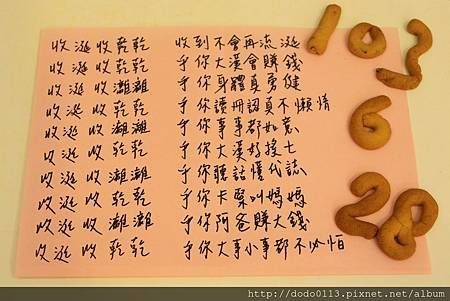 收涎收乾乾 收到不會再流涎
收涎收乾乾 乎你大漢會賺錢
收涎收灕灕 乎你身體真勇健
收涎收乾乾 乎你讀冊認真不懶惰
收涎收灕灕 乎你事事都如意
收涎收乾乾 乎你大漢好接七
收涎收灕灕 乎你聽話懂代誌
收涎收乾乾 乎你卡緊叫媽媽
收涎收灕灕 乎你阿爸賺大錢
收涎收乾乾 乎你大事小事都不必怕
103
6
28
http://dodo0113.pixnet.net/album